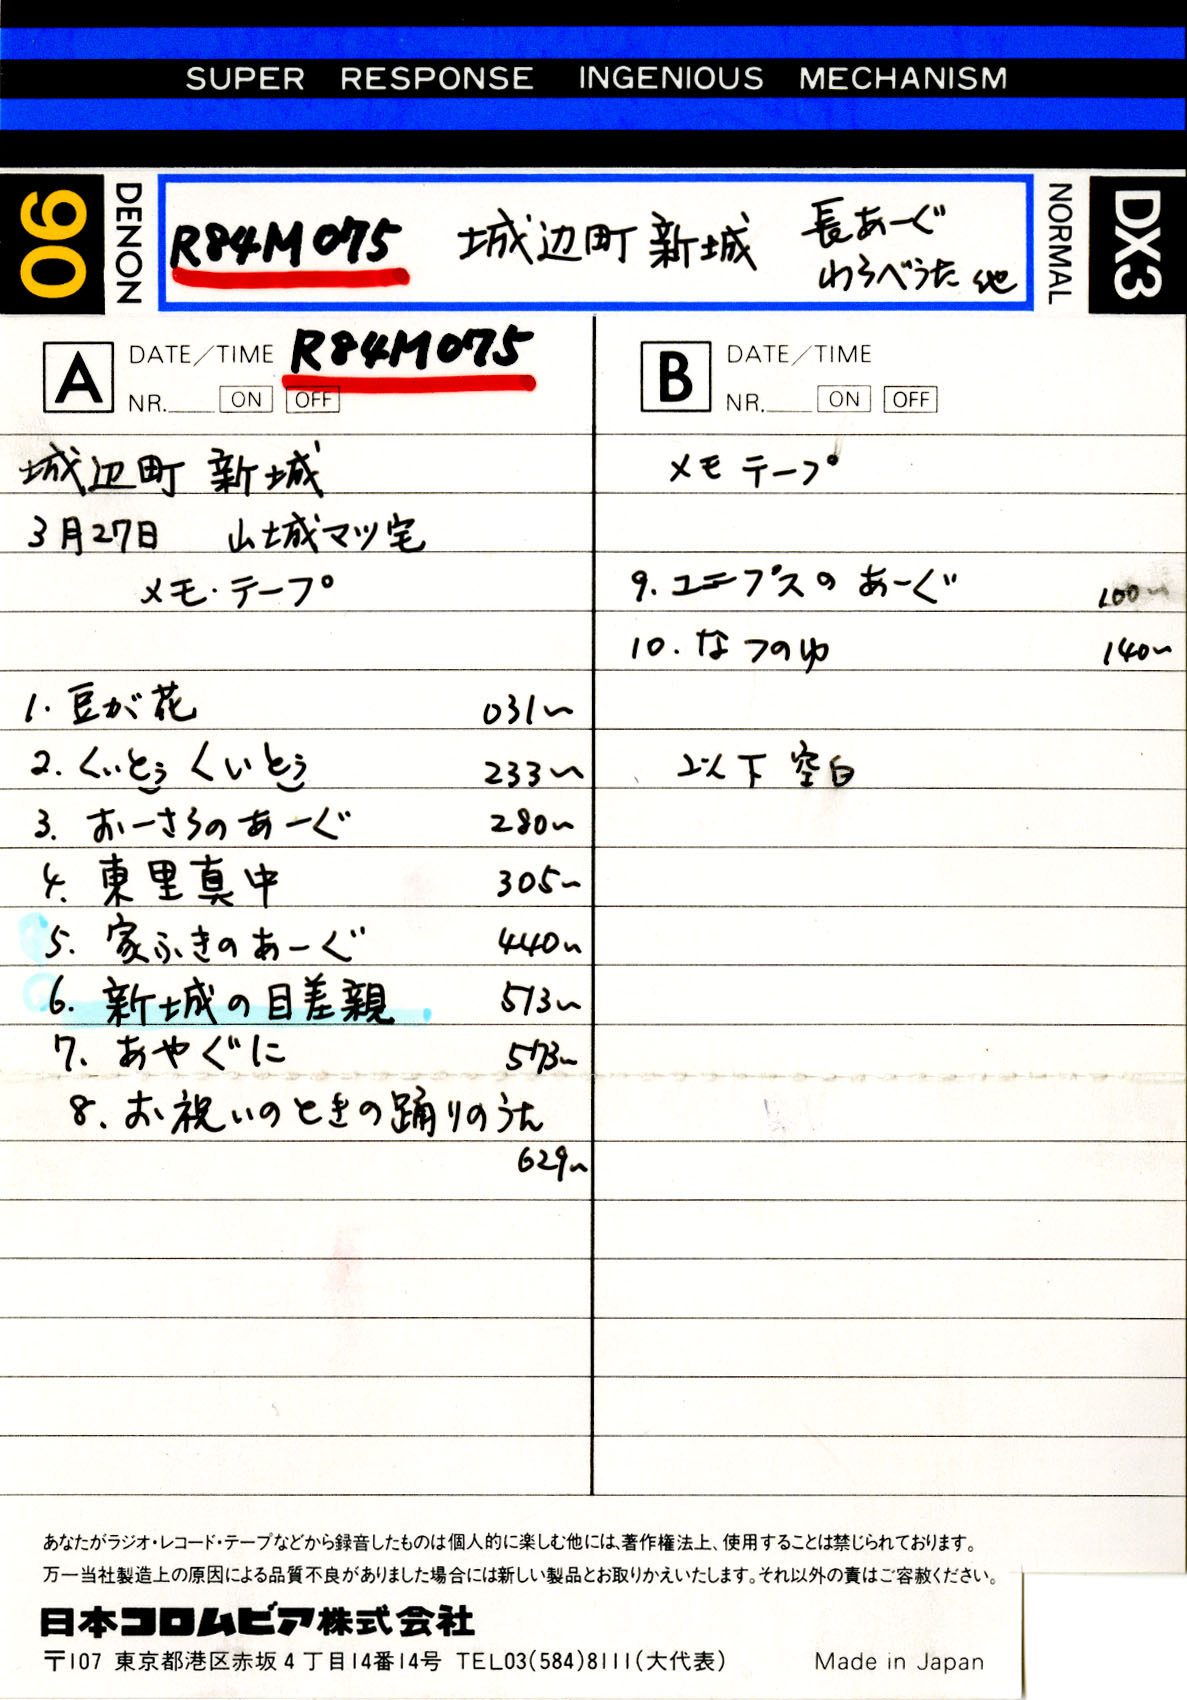 SUPER RESPONSE INGENIOUS MECHANISM
90
DENON
R84M075 城辺町 新城 長あーぐ
わらべうた 他
NORMAL
DX3
A DATE/TIME R84M075
NR.____ ON OFF
城辺町 新城
3月27日 山城マツ宅
メモ・テープ
1. 豆が花 031〜
2. くいとぅ くいとぅ 233〜
3. おーさらのあーぐ 280〜
4. 東里真中 305〜
5. 家ふきのあーぐ 440〜
6. 新城の目差親 513〜
7. あやぐに 573〜
8. お祝いのときの踊りのうた
629〜
B DATE/TIME
NR.____ ON OFF
メモ テープ
9. ユニプスのあーぐ 100〜
10. なつのゆ 140〜
以下 空白
あなたがラジオ・レコード・テープなどから録音したものは個人的に楽しむ他には、著作権法上、使用することは禁じられております。
万一当社製造上の原因による品質不良がありました場合には新しい製品とお取りかえいたします。それ以外の責はご容赦ください。
日本コロムビア株式会社
〒107 東京都港区赤坂4丁目14番14号 TEL03(584)8111(大代表) Made in Japan